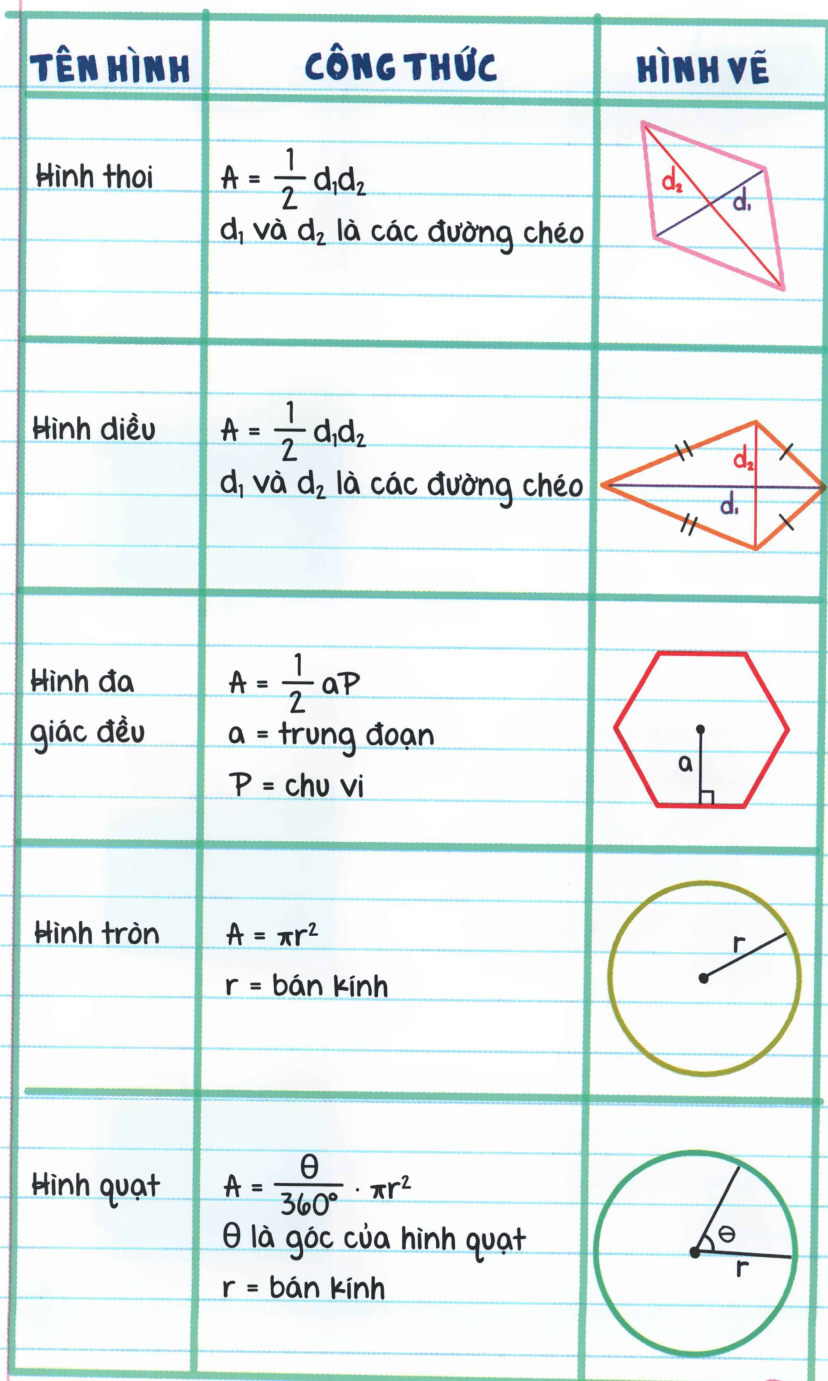 TÊN HÌNH CÔNG THỨC HÌNH VẼ
Hình thoi
A = 1/2 d₁d₂
d₁ và d₂ là các đường chéo
d₂
d₁
Hình diều
A = 1/2 d₁d₂
d₁ và d₂ là các đường chéo
d₂
d₁
Hình đa
giác đều
A = 1/2 aP
a = trung đoạn
P = chu vi
a
Hình tròn
A = πr²
r = bán kính
r
Hình quạt
A = θ/360° · πr²
θ là góc của hình quạt
r = bán kính
θ
r